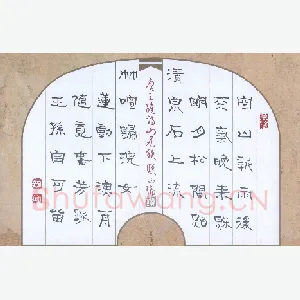 空山新雨後
天氣晚來秋
明月松間照
清泉石上流
竹喧歸浣女
蓮動下漁舟
隨意春芳歇
王孫自可留
Shufawang.CN